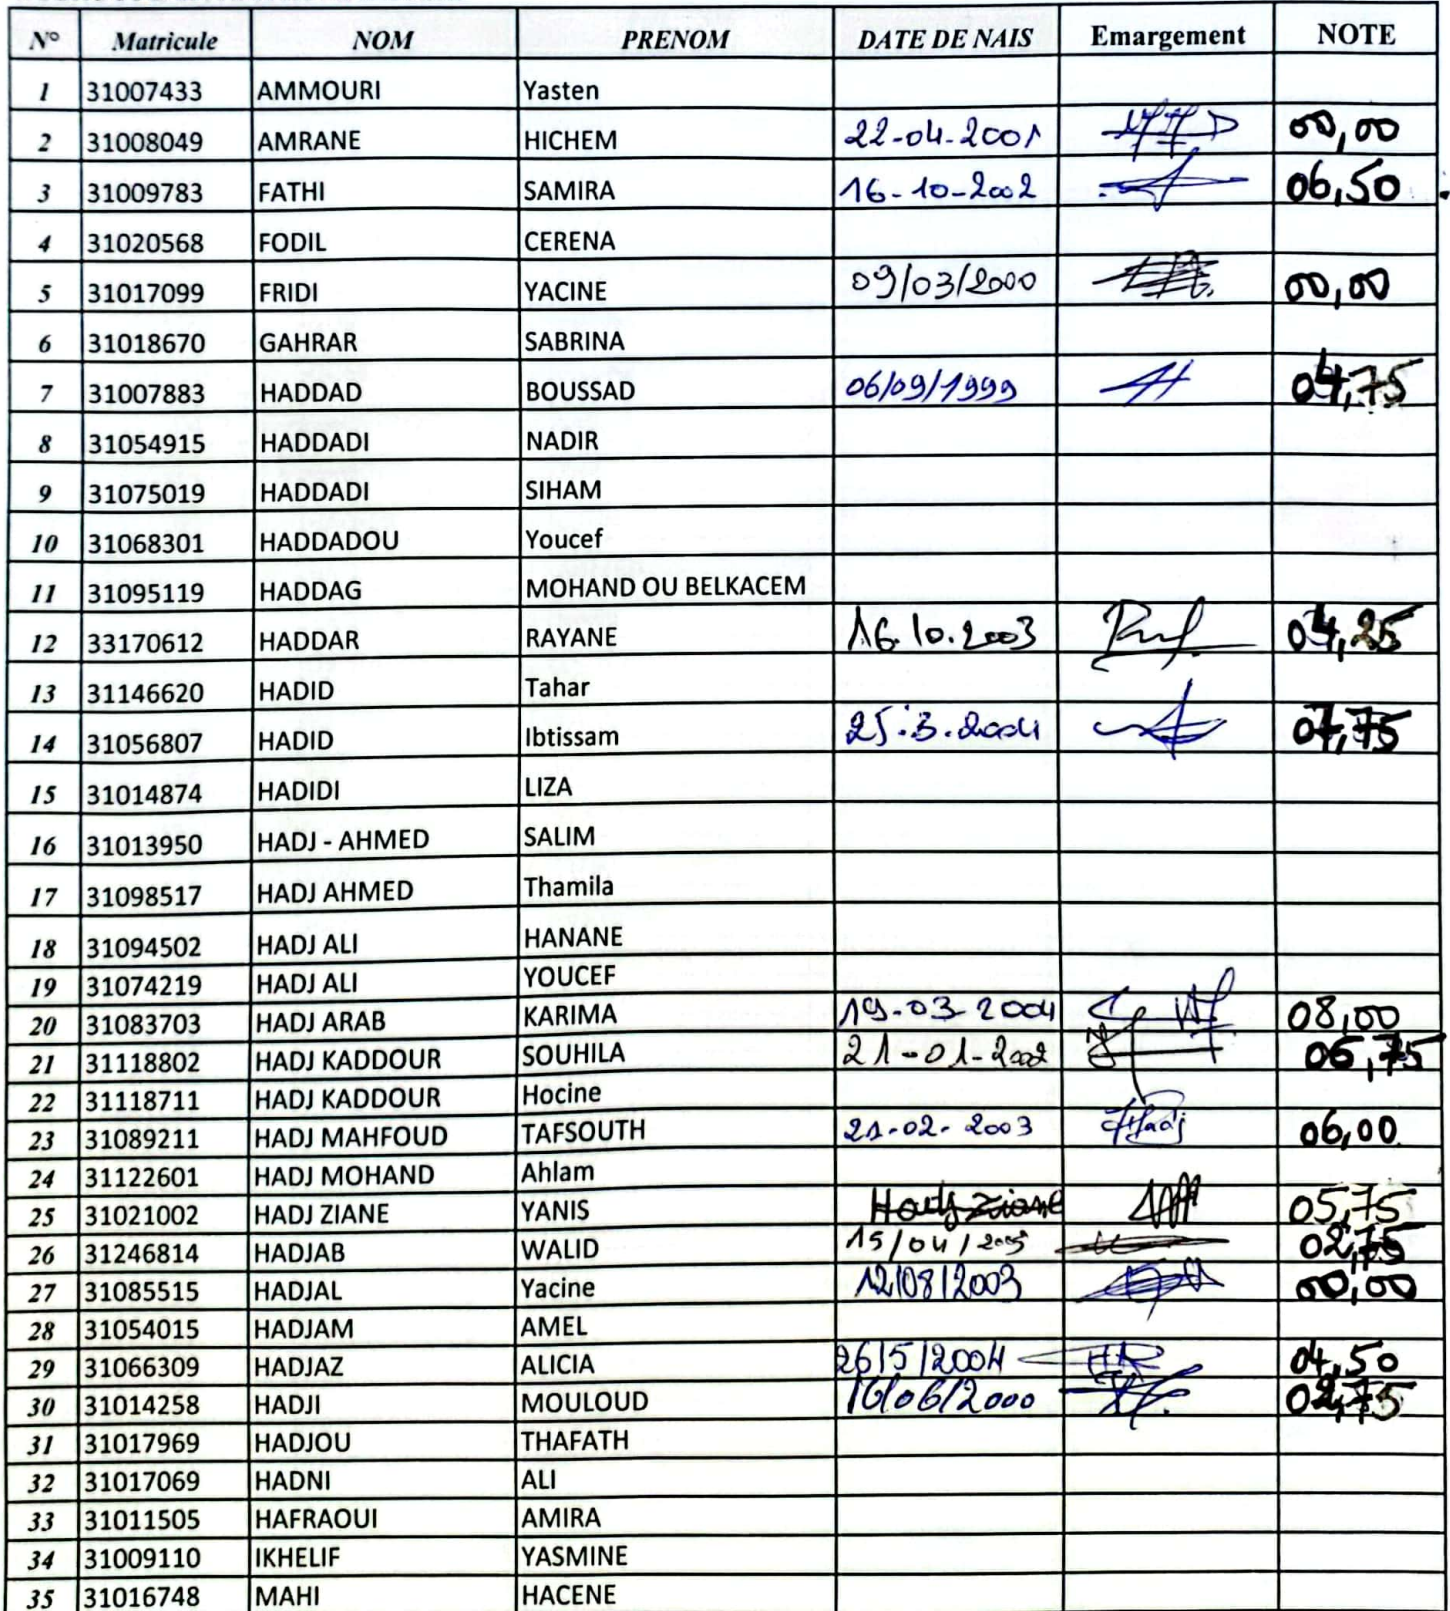 N° Matricule NOM PRENOM DATE DE NAIS Emargement NOTE
1 31007433 AMMOURI Yasten
2 31008049 AMRANE HICHEM 22-04-2001 00,00
3 31009783 FATHI SAMIRA 16-10-2002 06,50
4 31020568 FODIL CERENA
5 31017099 FRIDI YACINE 09/03/2000 00,00
6 31018670 GAHRAR SABRINA
7 31007883 HADDAD BOUSSAD 06/09/1999 04,75
8 31054915 HADDADI NADIR
9 31075019 HADDADI SIHAM
10 31068301 HADDADOU Youcef
11 31095119 HADDAG MOHAND OU BELKACEM
12 33170612 HADDAR RAYANE 16.10.2003 04,25
13 31146620 HADID Tahar
14 31056807 HADID Ibtissam 25.3.2004 07,75
15 31014874 HADIDI LIZA
16 31013950 HADJ - AHMED SALIM
17 31098517 HADJ AHMED Thamila
18 31094502 HADJ ALI HANANE
19 31074219 HADJ ALI YOUCEF
20 31083703 HADJ ARAB KARIMA 19-03-2004 08,00
21 31118802 HADJ KADDOUR SOUHILA 06,75
22 31118711 HADJ KADDOUR Hocine
23 31089211 HADJ MAHFOUD TAFSOUTH 21-02-2003 Hadj 06,00
24 31122601 HADJ MOHAND Ahlam
25 31021002 HADJ ZIANE YANIS Hadj Ziane 05,75
26 31246814 HADJAB WALID 02,75
27 31085515 HADJAL Yacine 12/08/2003 00,00
28 31054015 HADJAM AMEL
29 31066309 HADJAZ ALICIA 26/5/2004 04,50
30 31014258 HADJI MOULOUD 16/06/2000 02,75
31 31017969 HADJOU THAFATH
32 31017069 HADNI ALI
33 31011505 HAFRAOUI AMIRA
34 31009110 IKHELIF YASMINE
35 31016748 MAHI HACENE